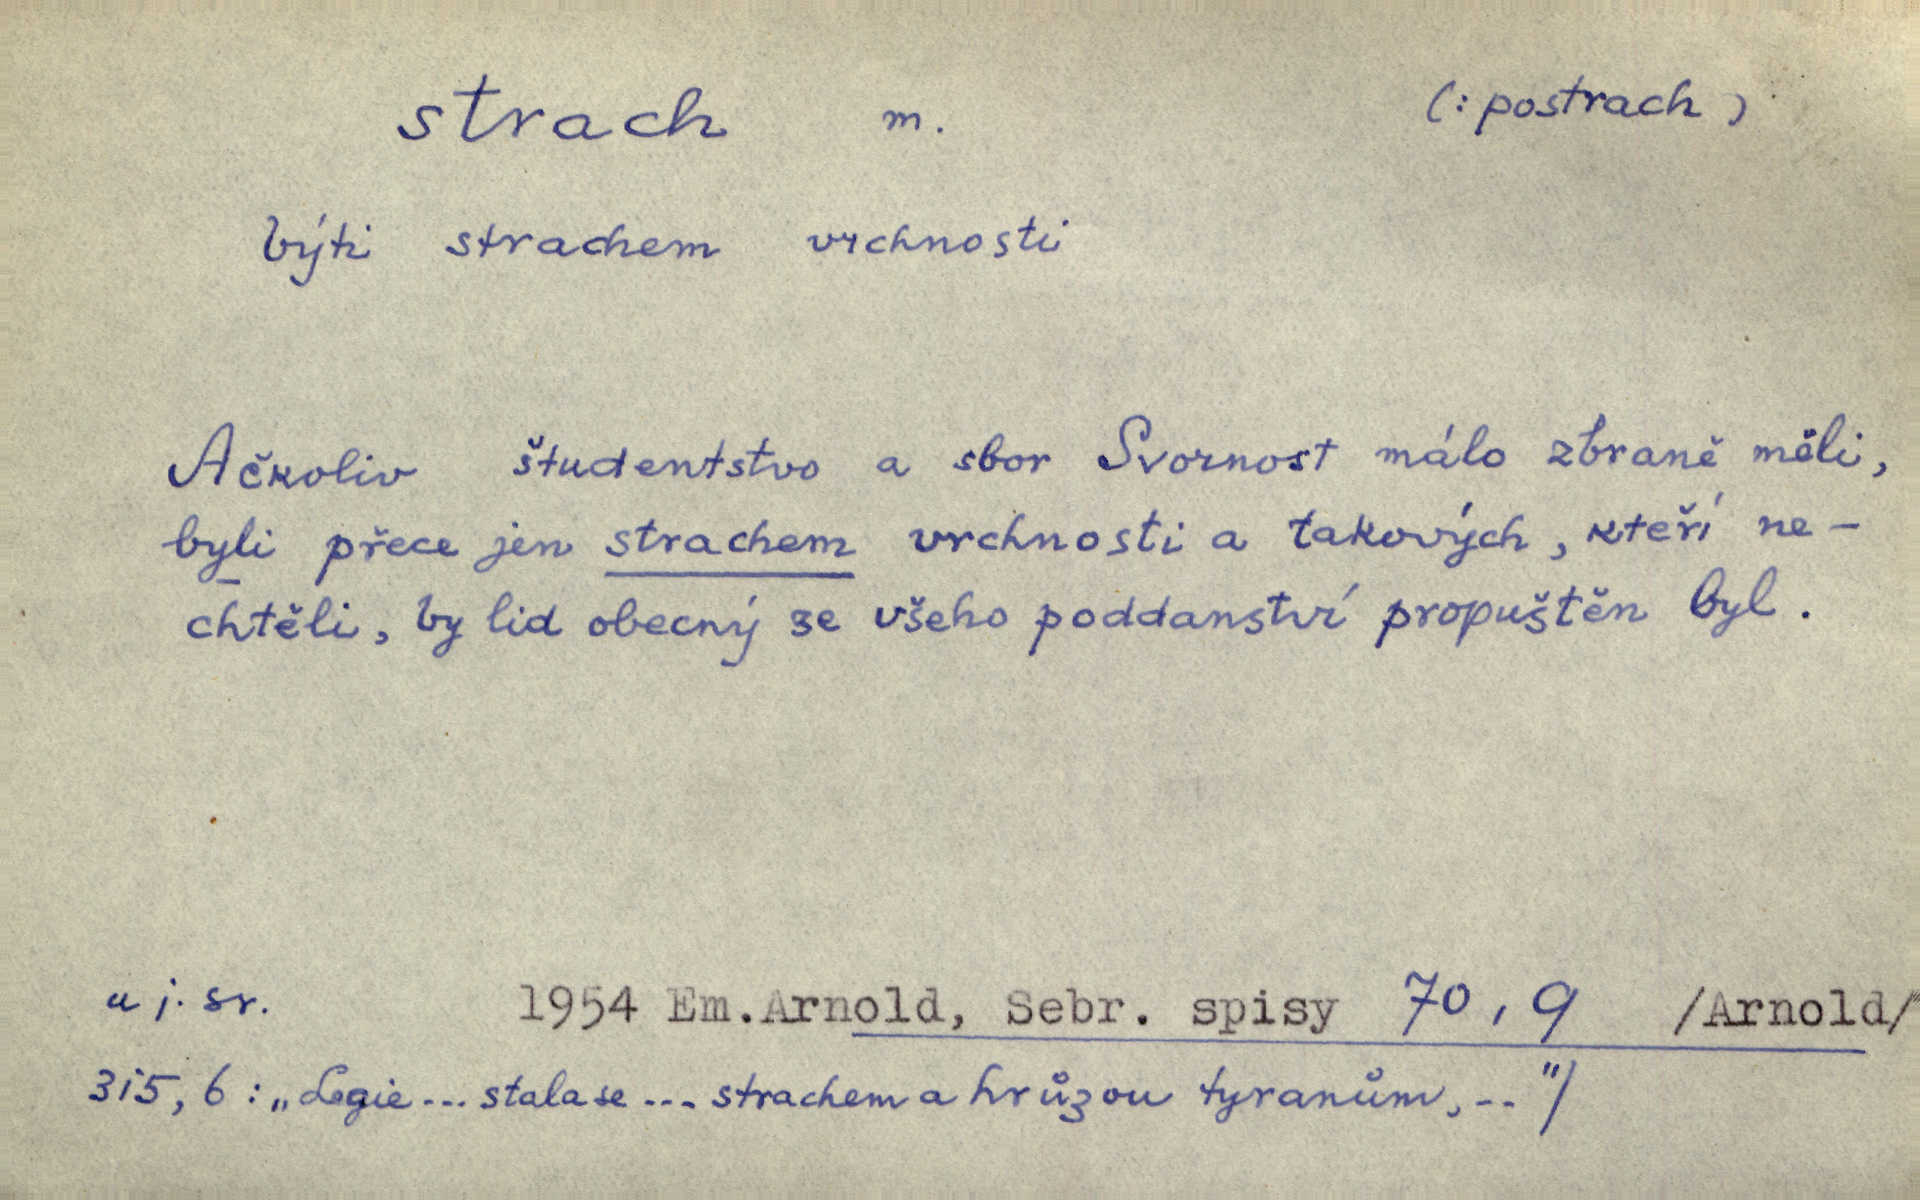 strach m. (: postrach )
býti strachem vrchnosti
Ačkoliv študentstvo a sbor Svornost málo zbraně měli,
byli přece jen strachem vrchnosti a takových, kteří ne-
chtěli, by lid obecný ze všeho poddanství propuštěn byl.
a j. sr. 1954 Em.Arnold, Sebr. spisy 70, 9 /Arnold/
315, 6 : „Legie... stala se ... strachem a hrůzou tyranům, .."/